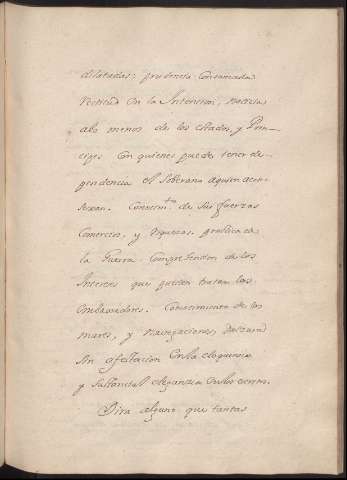 dilatadas: prudencia consumada
Rectitud en la Intencion, noticia
alo menos de los estados, y Prin-
cipes con quienes puede tener de-
pendencia el Soberano aquien acon-
sexan. Conocim.to de sus fuerzas
Comercios, y Riquezas. practica de
la Guerra. Comprehension de los
Interes que puedan tratar los
Embaxadores. Conocimiento de los
mares, y navegaciones,
Sin afectacion en la eloquencia
y Substancial elegancia en los
Dira alguno que tantas